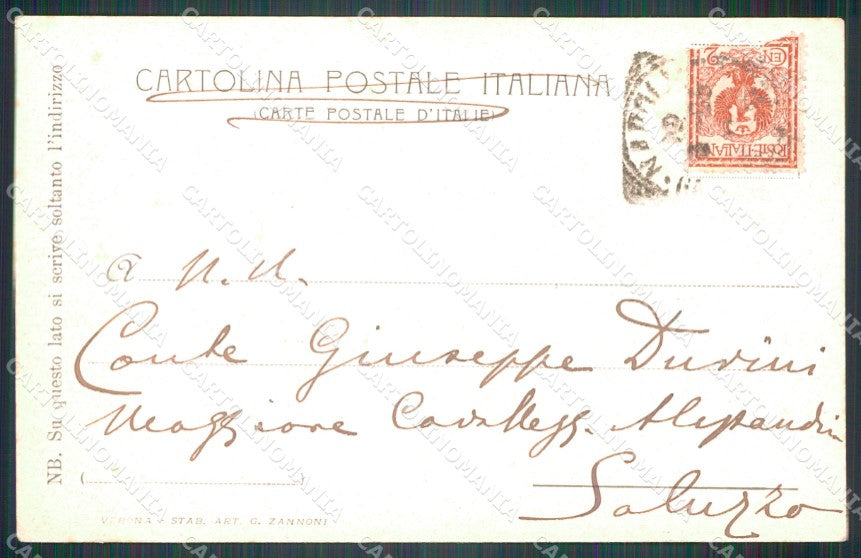 CARTOLINA POSTALE ITALIANA
(CARTE POSTALE D'ITALIE)
NB. Su questo lato si scrive soltanto l'indirizzo
CENT. 2
POSTE ITALIANE
NAPOLI
A N. H.
Conte Giuseppe Durini
Maggiore Cavallegg. Alessandria
Saluzzo
VERONA - STAB. ART. G. ZANNONI
CARTOLINOMANIA